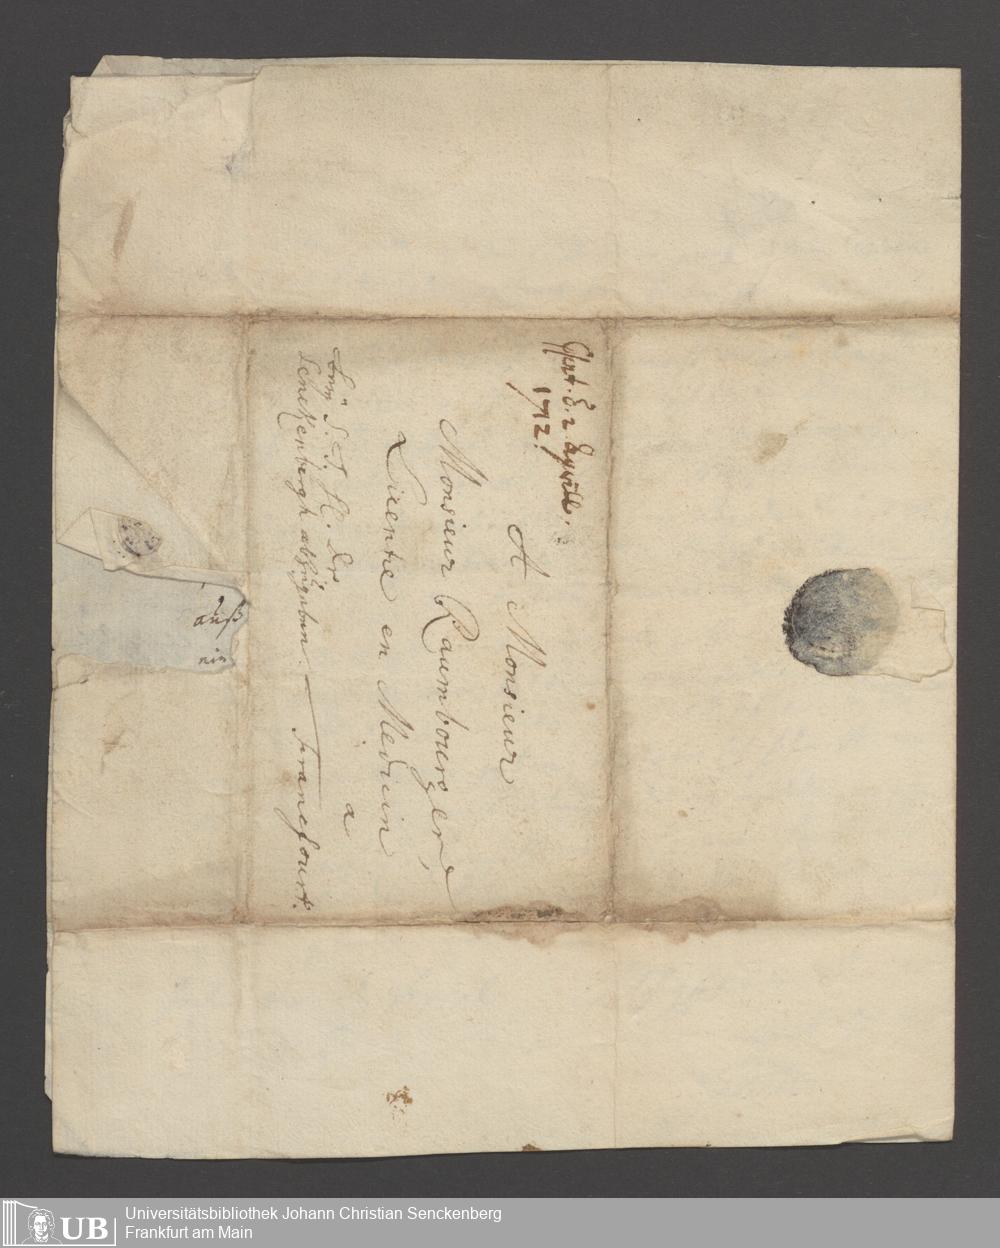 1712.
A Monsieur
Monsieur Raumbourger,
Licentie en Medicin
a
Francfourt.
S. T. H. Dr
Senckenbergh abzugeben.
auß
UB
Universitätsbibliothek Johann Christian Senckenberg
Frankfurt am Main